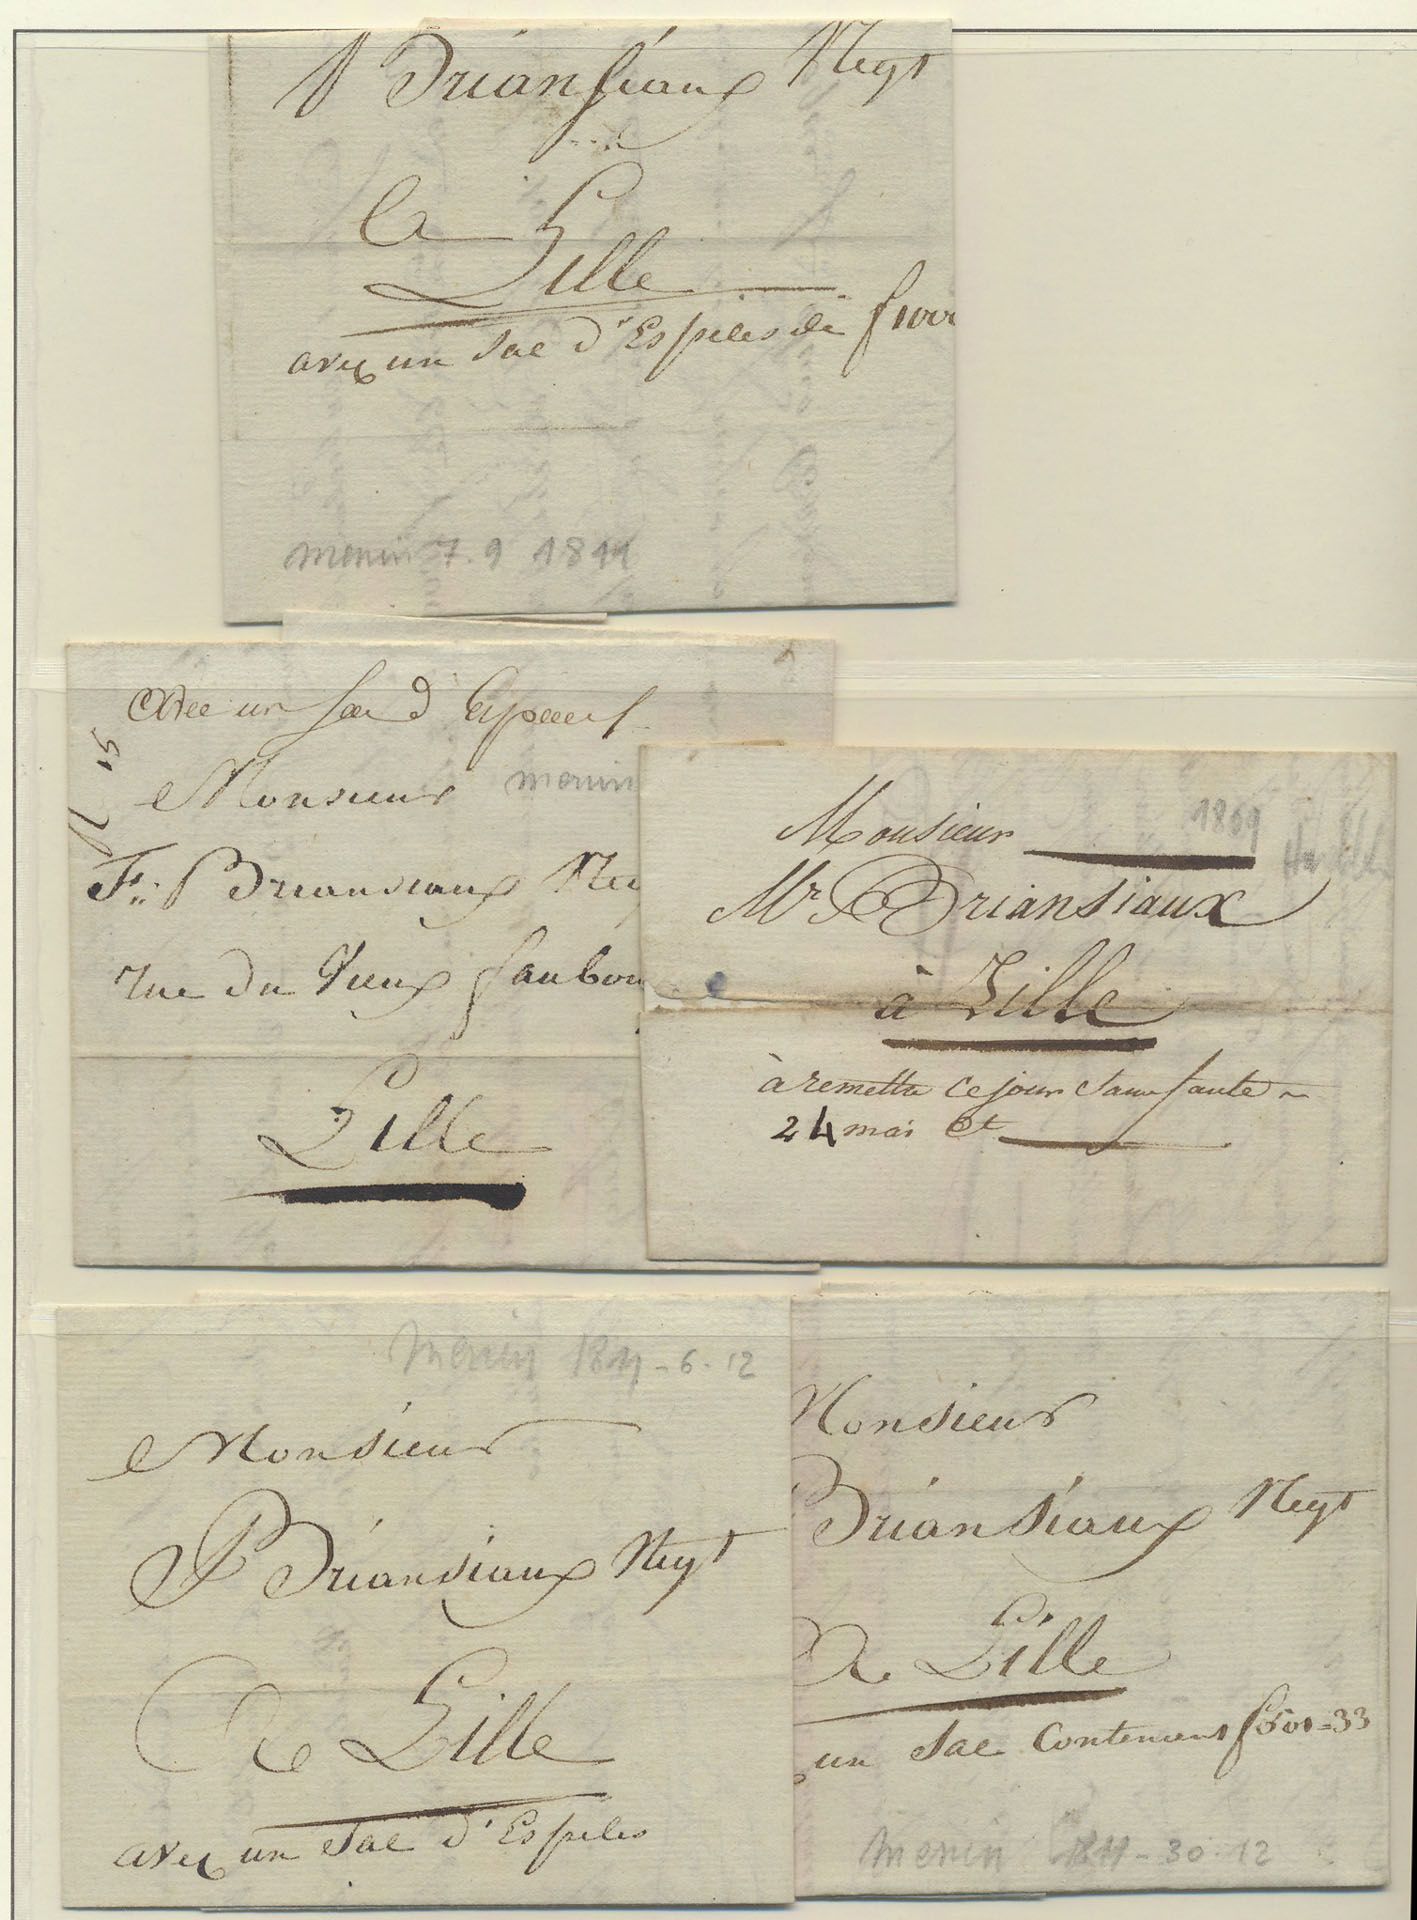 P Briansiaux Negt
A
Lille
avec un Sac d'Espèces de f 1000
menin 7.9 1811
Avec un Sac d Especes
15
Monsieur menin
Fs: Briansiaux Neg
rue du Vieux faubou
Lille
1809
Monsieur
Mr. Briansiaux
à Lille
à remettre ce jour sans faute
24 mai Ct
menin 1811-6-12
Monsieur
P Briansiaux Negt
A Lille
avec un Sac d'Espèces
Monsieur
Briansiaux Negt
A Lille
un Sac Contenant f501-33
menin 1811-30-12